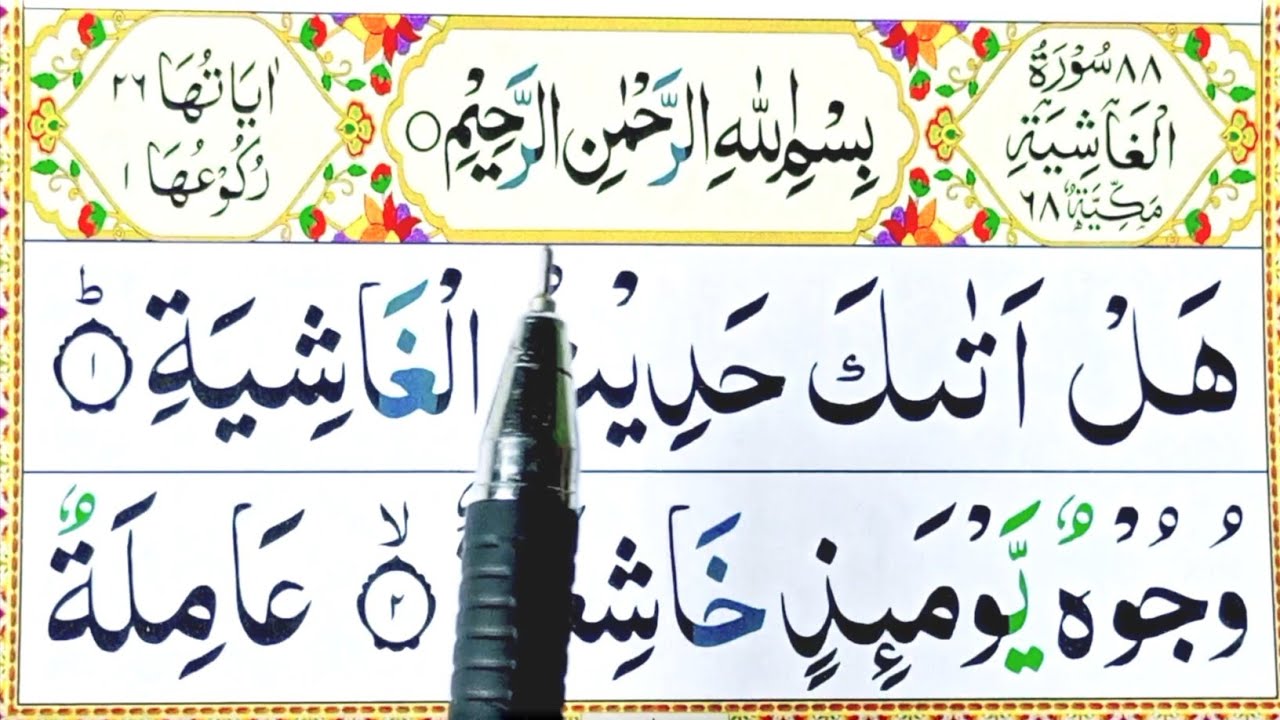 ٨٨ سُوْرَةُ
الْغَاشِيَةِ
مَكِّيَّةٌ ٦٨
بِسْمِ اللّٰهِ الرَّحْمٰنِ الرَّحِيْمِ ○
اٰيَاتُهَا ٢٦
رُكُوْعُهَا ١
هَلْ اَتٰىكَ حَدِيْثُ الْغَاشِيَةِ ؕ ١
وُجُوْهٌ يَّوْمَئِذٍ ۙ ٢ عَامِلَةٌ